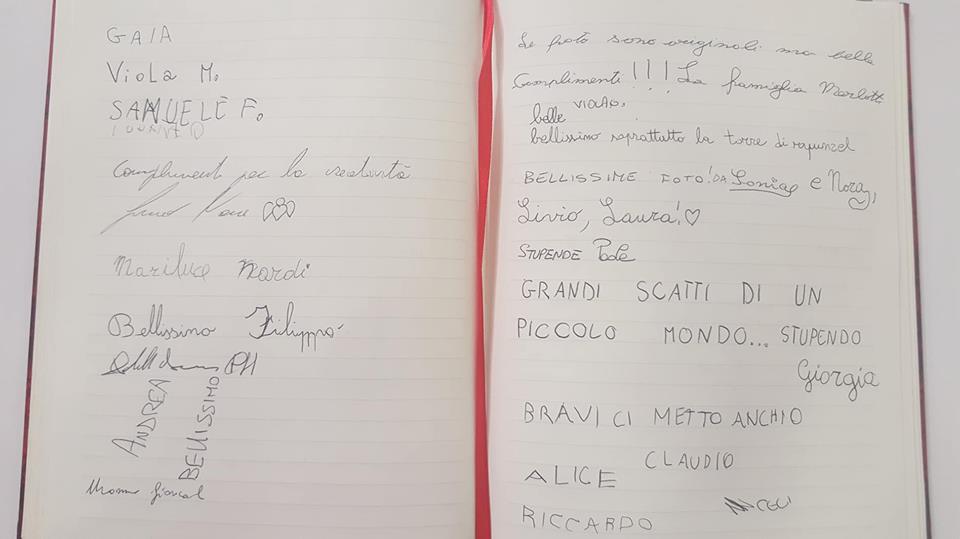 GAIA
Viola M.
SAMUELE F.
Complimenti per la creatività
Mariluce Nardi
Bellissimo Filippo
PH
ANDREA
BELLISSIMO
Le foto sono originali ma belle
Complimenti!!! La famiglia Marlotti
belle VIOLA D.
bellissimo soprattutto la torre di rapunzel
BELLISSIME FOTO! DA Sonia e Nora,
Livio, Laura!♡
STUPENDE
GRANDI SCATTI DI UN
PICCOLO MONDO... STUPENDO
Giorgia
BRAVI CI METTO ANCHIO
CLAUDIO
ALICE
RICCARDO